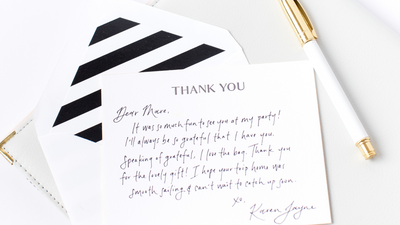 THANK YOU
Dear Mare,
It was so much fun to see you at my party!
I'll always be so grateful that I have you.
Speaking of grateful, I love the bag. Thank you
for the lovely gift! I hope your trip home was
smooth sailing & can't wait to catch up soon.
xo,
Karen Jayne